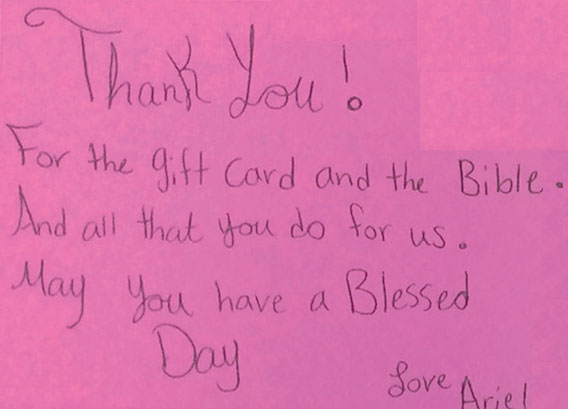 Thank You!
For the gift card and the Bible.
And all that you do for us.
May you have a Blessed
Day
Love Ariel